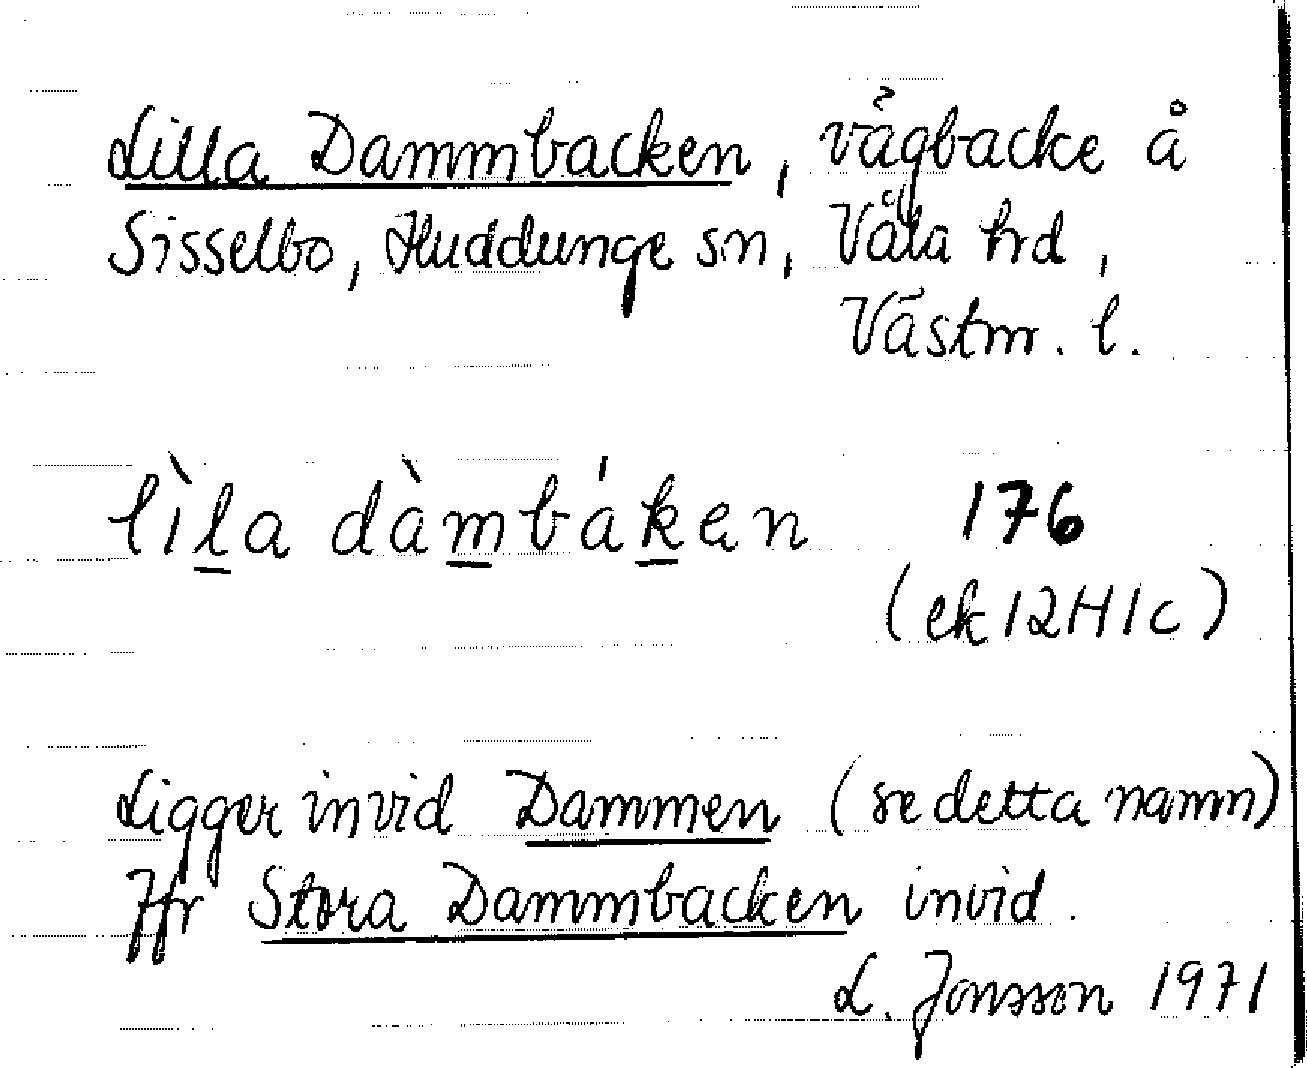 Lilla Dammbacken, vägbacke å
Sisselbo, Huddunge sn, Våla hrd,
Västm. l.
lìla dàmbáken 176
(ek 12H1c)
Ligger invid Dammen (se detta namn)
Jfr Stora Dammbacken invid.
L. Jonsson 1971